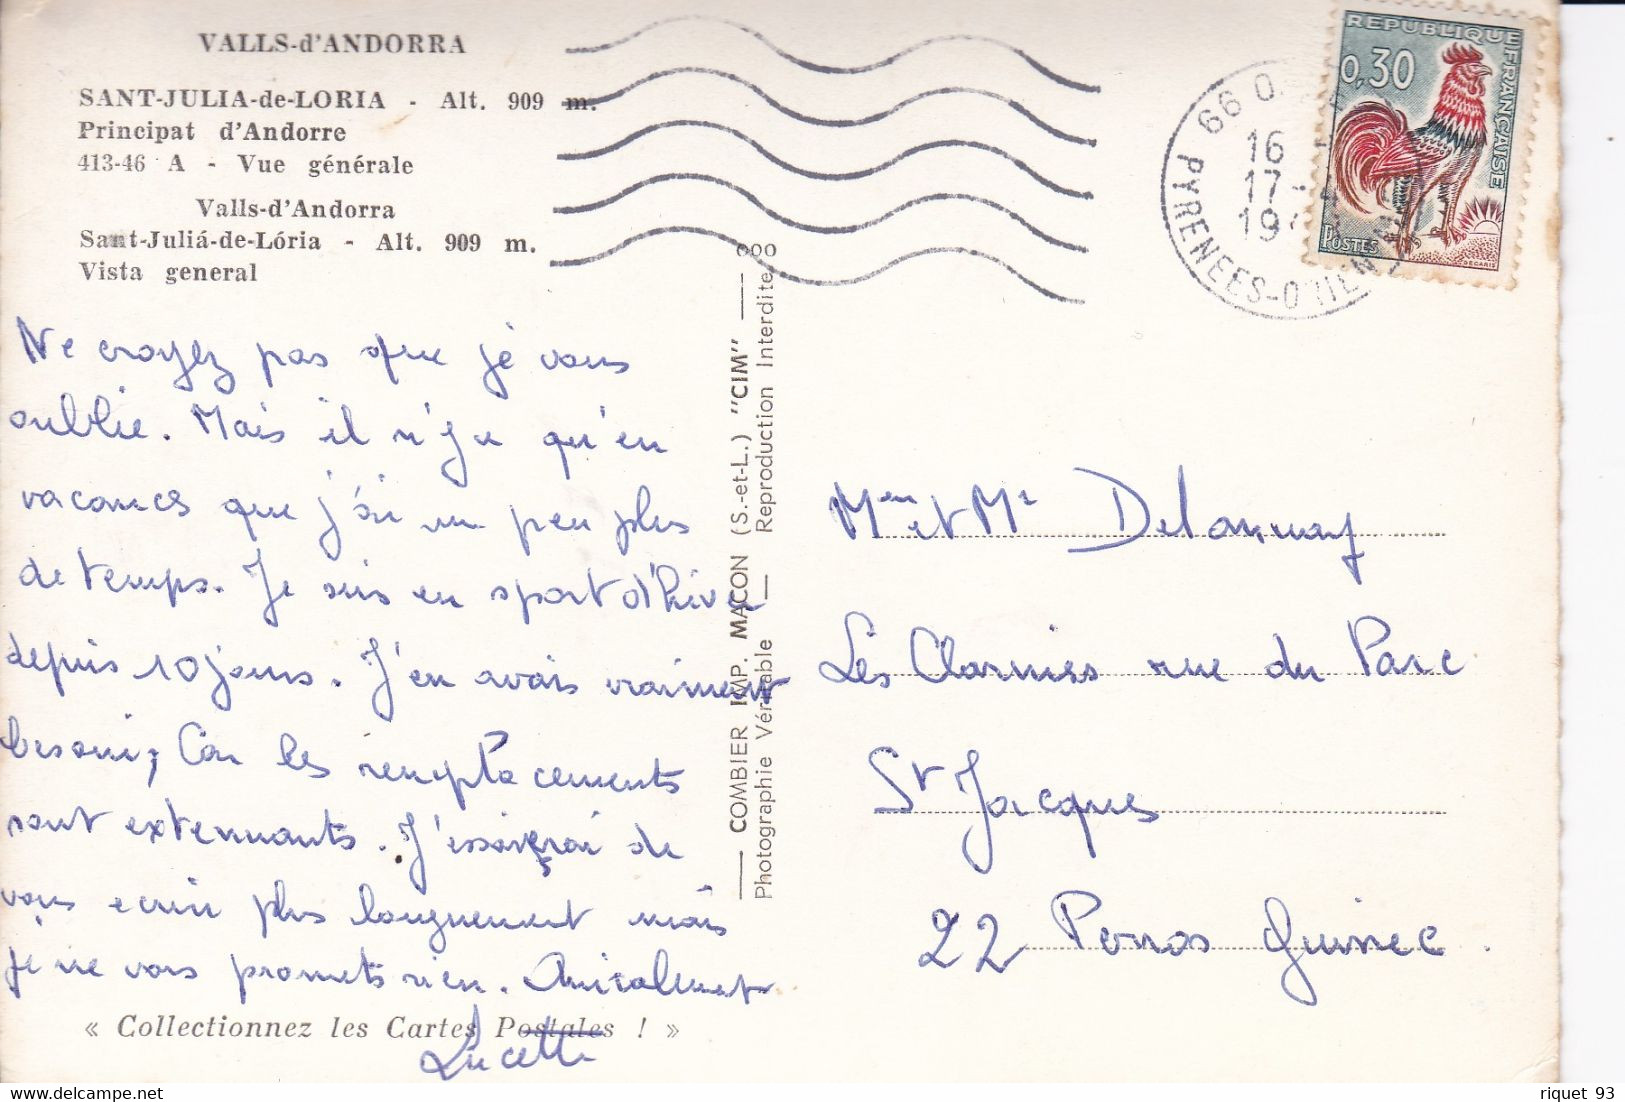 VALLS-d'ANDORRA
SANT-JULIA-de-LORIA - Alt. 909 m.
Principat d'Andorre
413-46 A - Vue générale
Valls-d'Andorra
Sant-Juliá-de-Lória - Alt. 909 m.
Vista general
Ne croyez pas que je vous
oublie. Mais il n'y a qu'en
vacances que j'ai un peu plus
de temps. Je suis en sport d'hiver
depuis 10 jours. J'en avais vraiment
besoin, Car les remplacements
sont extennuants. J'essaierai de
vous ecrire plus longuement mais
je ne vous promets rien. Amicalement
« Collectionnez les Cartes Postales ! »
Lucette
COMBIER IMP. MACON (S.-et-L.) "CIM"
Photographie Véritable — Reproduction Interdite
REPUBLIQUE FRANÇAISE
0,30
POSTES
DECARIS
66
16
17 -
19
PYRENEES-O
Mme et Mr Delaunay
Les Charmes rue du Parc
St Jacques
22 Perros Guirrec.
riquet 93